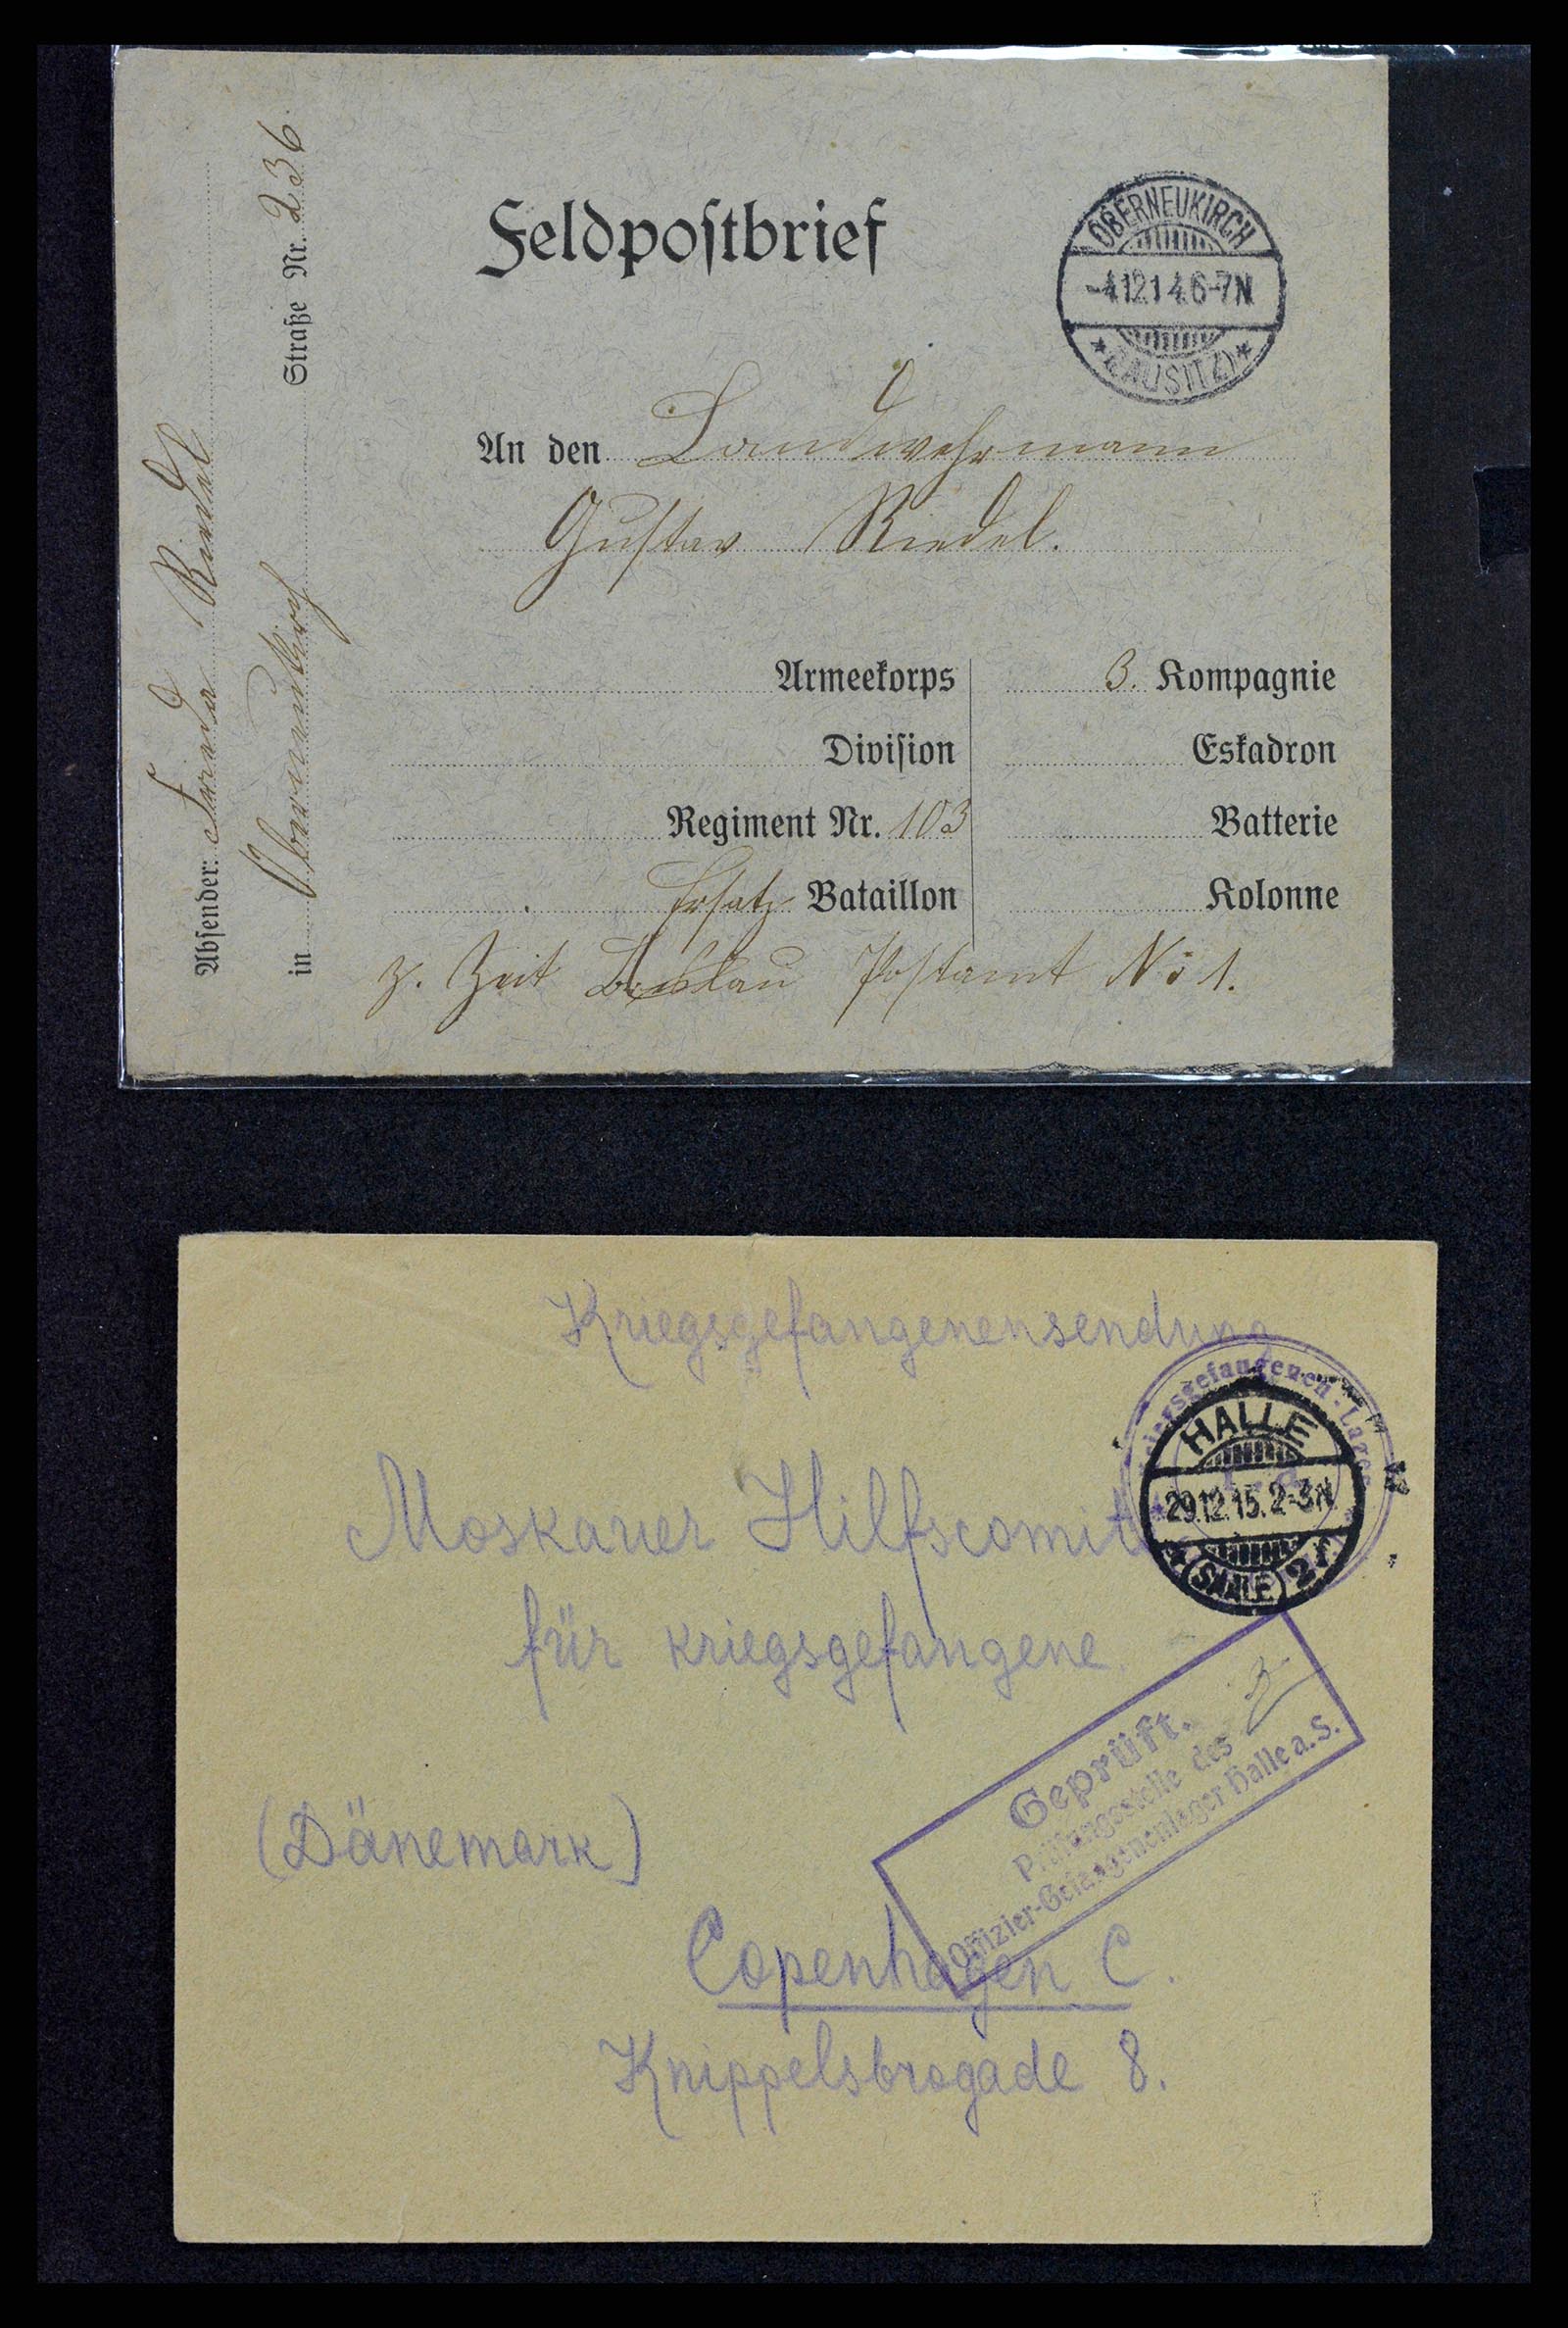 Feldpostbrief
OBERNEUKIRCH
-4.12.14.6-7N
*(LAUSITZ)*
An den Landwehrmann
Gustav Riedel.
Armeekorps
3. Kompagnie
Division
Eskadron
Regiment Nr. 103
Batterie
Ersatz Bataillon
Kolonne
z. Zeit Postamt No 1.
Absender: Frieda Riedel
in Oberneukirch Straße Nr. 236.
Kriegsgefangenensendung
gefangenen-Lager
HALLE
29.12.15.2-3N
*(SAALE) 2f
Moskauer Hilfscomit
für kriegsgefangene.
Geprüft.
Prüfungsstelle des
Offizier-Gefangenenlager Halle a. S.
(Dänemark)
Copenhagen C.
Knippelsbrogade 8.